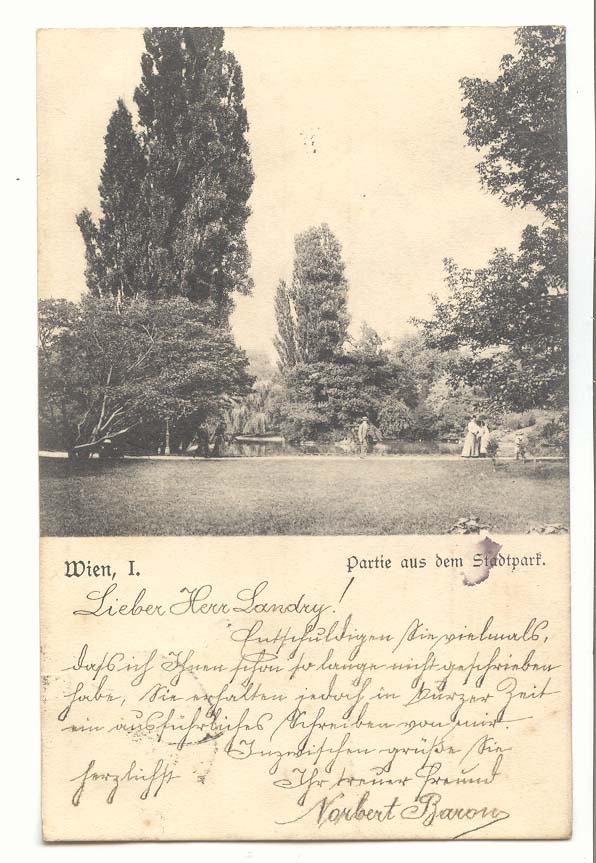 Wien, I.
Partie aus dem Stadtpark.
Lieber Herr Landry!
Entschuldigen Sie vielmals,
daß ich Ihnen schon so lange nicht geschrieben
habe, Sie erhalten jedoch in kurzer Zeit
ein ausführliches Schreiben von mir.
Inzwischen grüße Sie
herzlichst Ihr treuer Freund
Norbert Baron